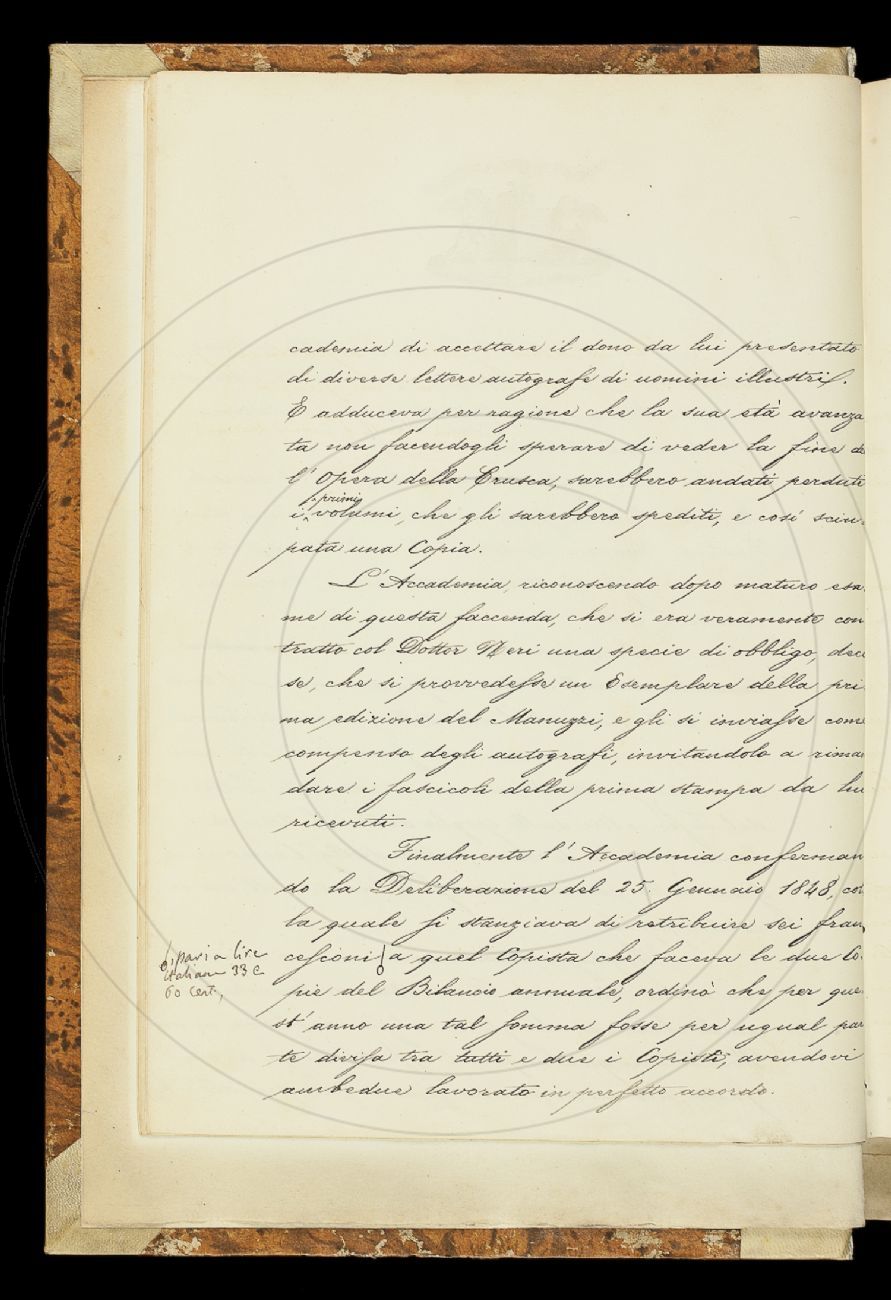 cademia di accettare il dono da lui presentato
di diverse lettere autografe di uomini illustri.
E adduceva per ragione che la sua età avanza
ta non facendogli sperare di veder la fine de
l'Opera della Crusca, sarebbero andati perduti
primi
i volumi, che gli sarebbero spediti, e così sciu-
pata una Copia.
L'Accademia, riconoscendo dopo maturo esa-
me di questa faccenda, che si era veramente con
tratto col Dottor Neri una specie di obbligo, deci
se, che si provvedesse un Esemplare della pri
ma edizione del Manuzzi, e gli si inviasse come
compenso degli autografi, invitandolo a riman
dare i fascicoli della prima stampa da lui
ricevuti.
Finalmente l'Accademia conferman
do la Deliberazione del 25. Gennaio 1848, con
la quale si stanziava di retribuire sei fran
cesconi a quel Copista che faceva le due Co-
, pari a lire
italiane 33 e
60 cent,
pie del Bilancio annuale, ordinò che per que-
st'anno una tal somma fosse per ugual par
te divisa tra tutti e due i Copisti, avendovi
ambedue lavorato in perfetto accordo.